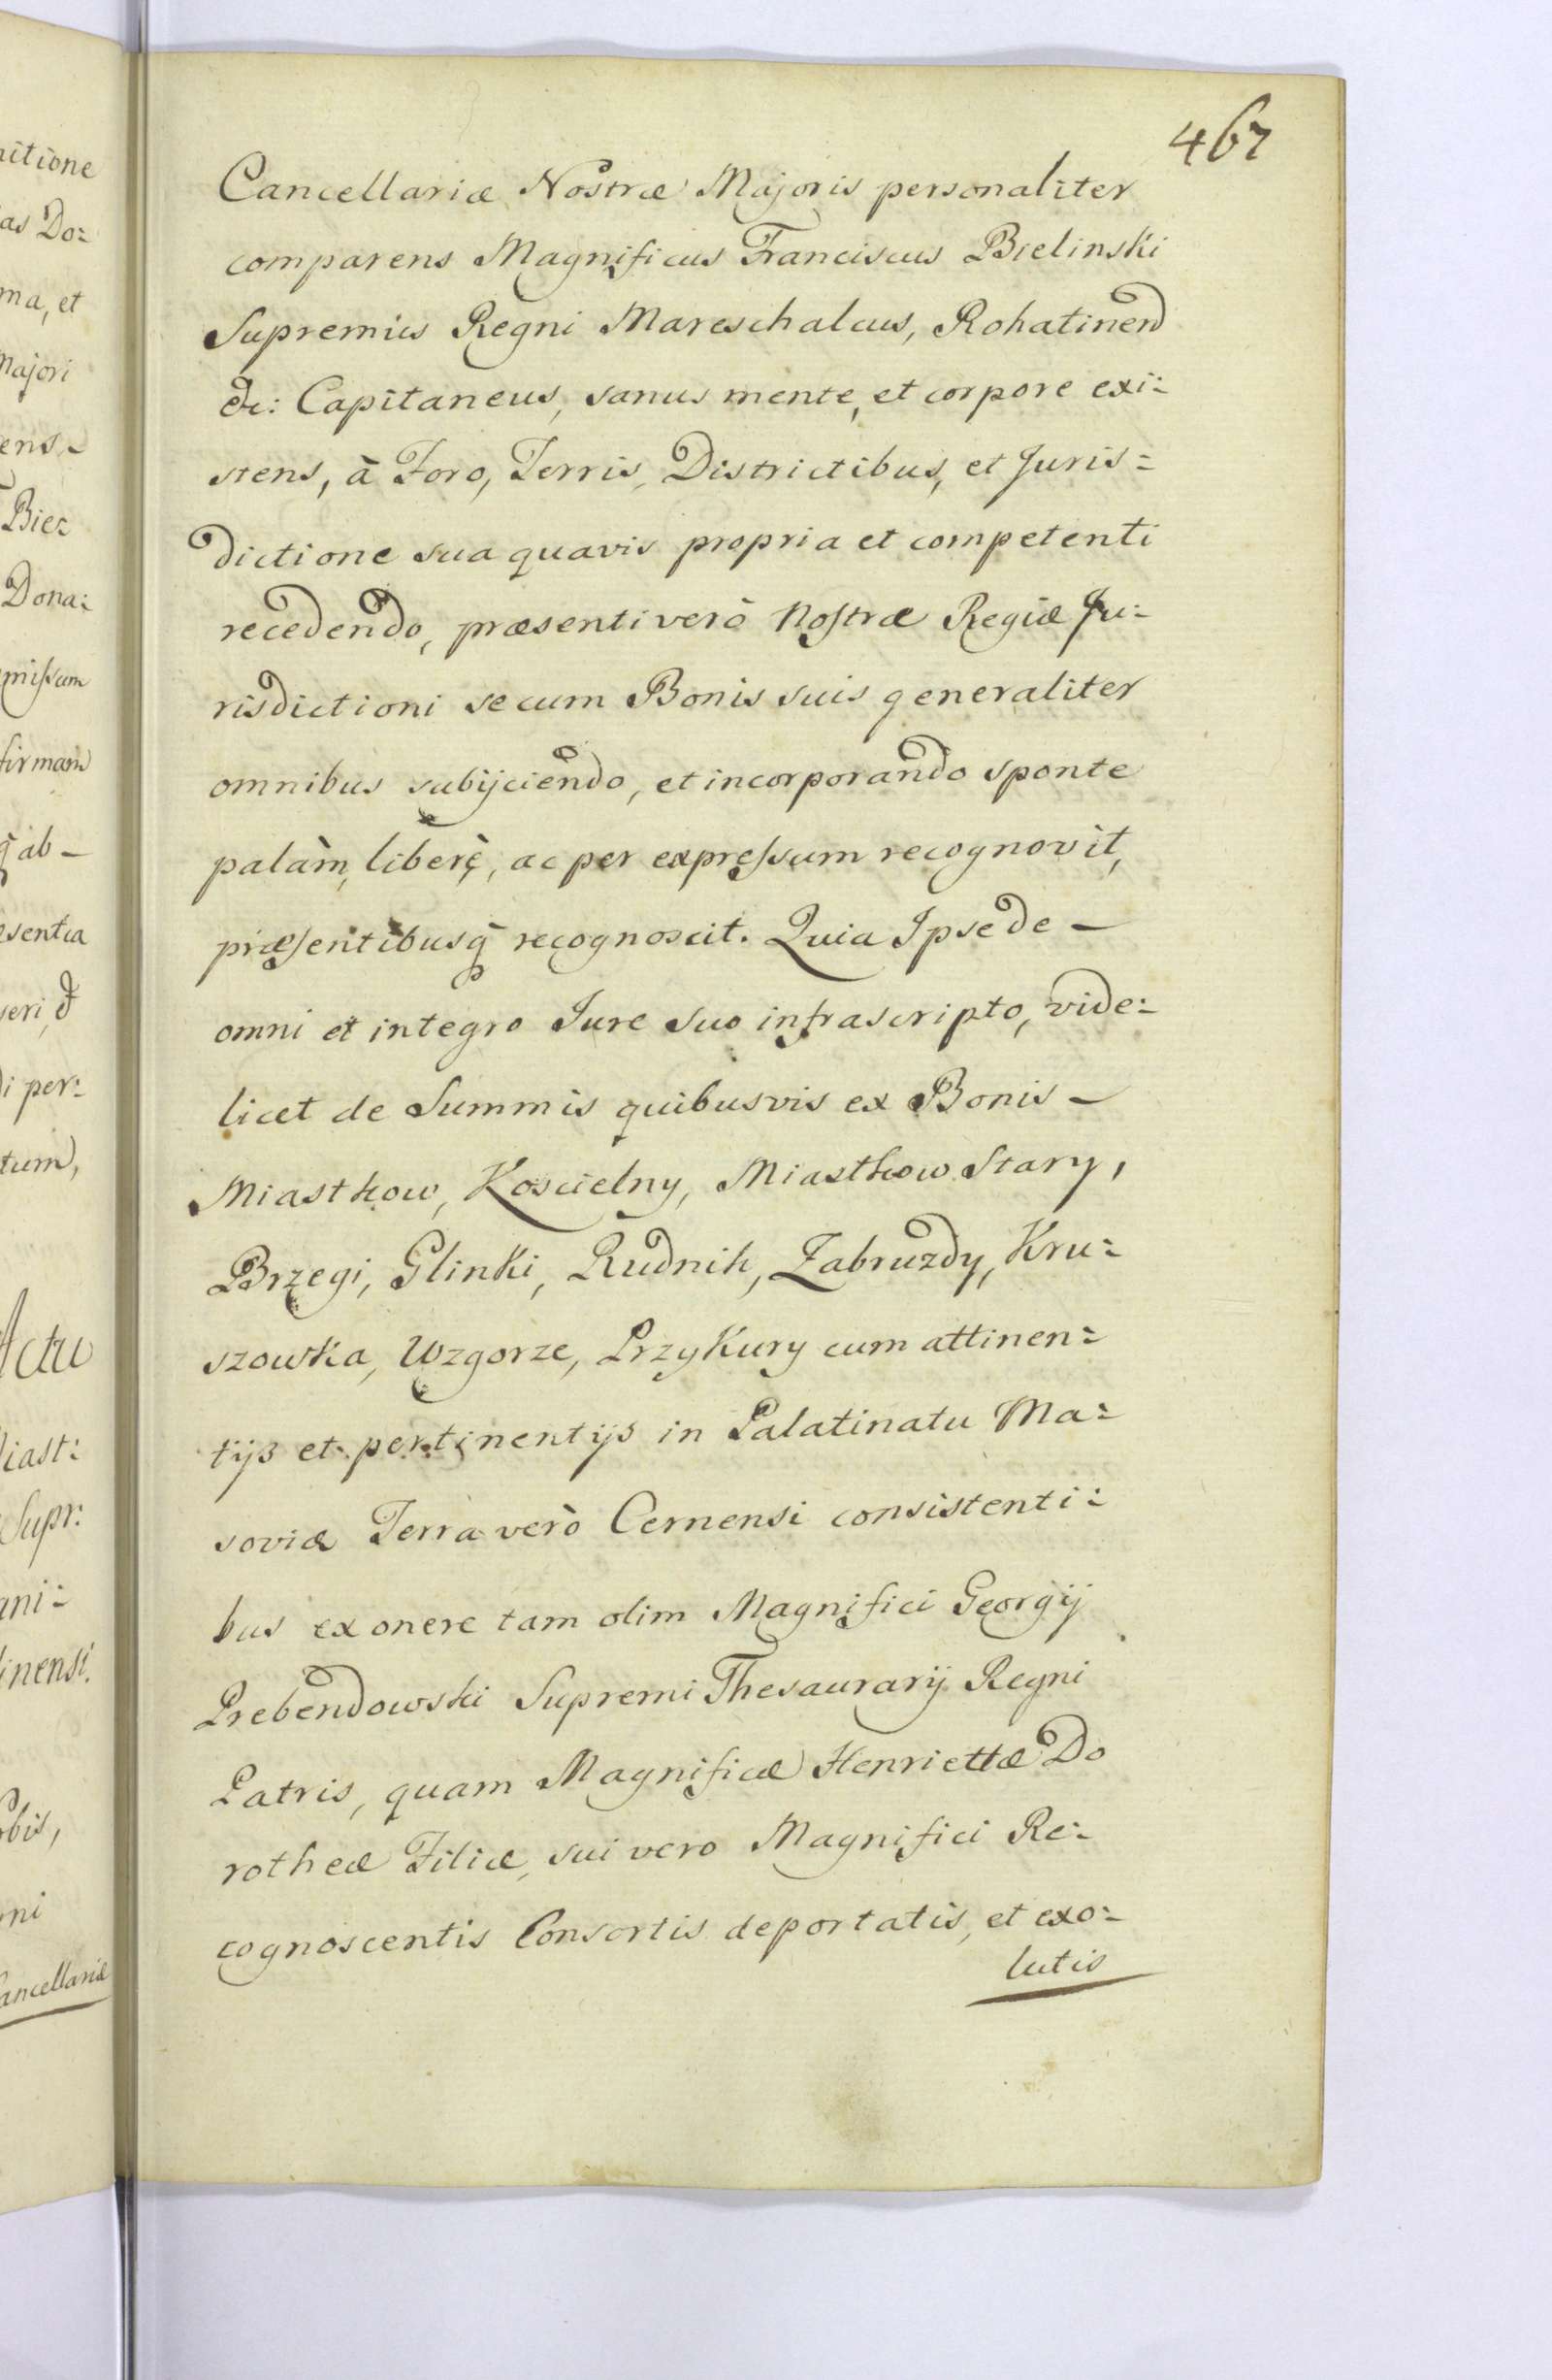 467
Cancellariæ Nostræ Majoris personaliter
comparens Magnificus Franciscus Bielinski
Supremus Regni Mareschalcus, Rohatinen
&c: Capitaneus, sanus mente, et corpore exi=
stens, à Foro, Terris, Districtibus, et Juris=
dictione sua quavis propria et competenti
recedendo, præsenti verò Nostræ Regiæ Ju=
risdictioni se cum Bonis suis generaliter
omnibus subijciendo, et incorporando sponte
palàm, liberè, ac per expressum recognovit,
præsentibusq̃ recognoscit. Quia Ipse de –
omni et integro Jure suo infrascripto, vide=
licet de Summis quibusvis ex Bonis –
Miastkow, Koscielny, Miastkow Stary,
Brzegi, Glinki, Rudnik, Zabruzdy, Kru=
szowka, Wzgorze, Przykury cum attinen=
tijs et pertinentijs in Palatinatu Ma=
soviæ Terra verò Cernensi consistenti=
bus ex onere tam olim Magnifici Georgij
Prebendowski Supremi Thesaurarij Regni
Patris, quam Magnificæ Henriettæ Do
rotheæ Filiæ, sui vero Magnifici Re=
cognoscentis Consortis deportatis, et exo=
lutis
nitione
as Do=
ma, et
Majori
ens –
Bie=
Dona=
missum
firmam
ab –
sentia
seri,
i per=
tum,
Actu
iast=
Supr:
ani=
inensi.
obis,
ni
Cancellariæ